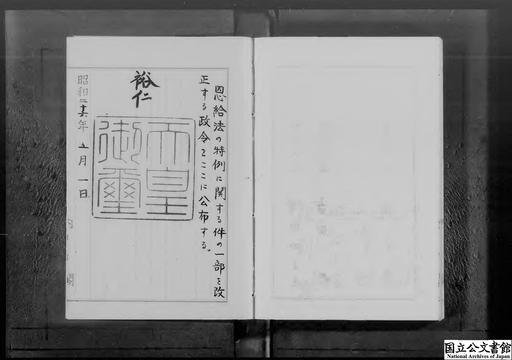 恩給法の特例に関する件の一部を改
正する政令をここに公布する。
裕仁
天皇
御璽
昭和二十六年五月一日
国立公文書館
National Archives of Japan